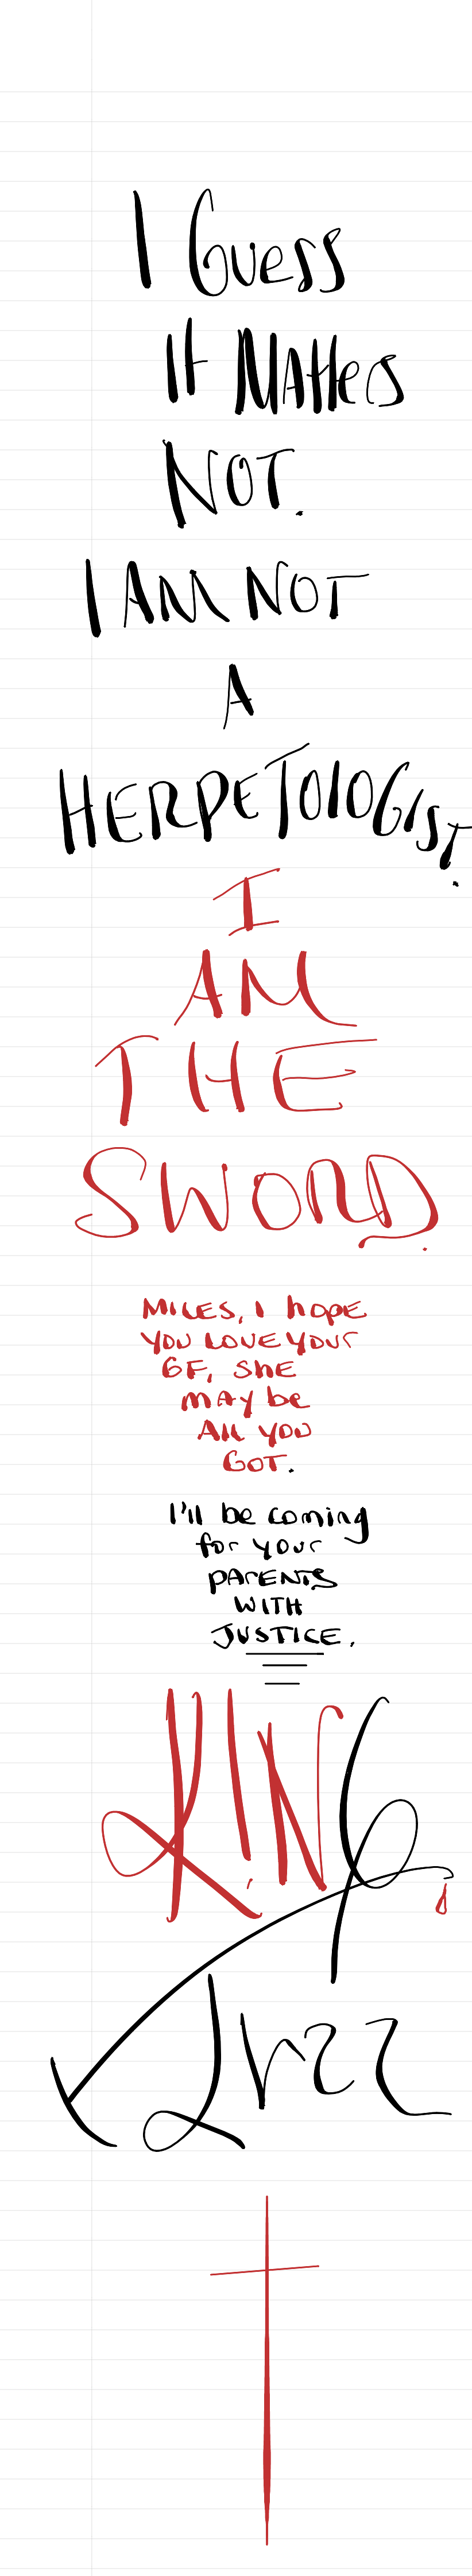 I Guess
It Matters
NOT.
I AM NOT
A
HERPETOlOGIST.
I
AM
THE
SWORD.
MILES, I hope
YOU LOVE YOUr
GF, She
may be
All YOU
GOT.
I'll be coming
for your
PARENTS
WITH
JUSTICE.
KING